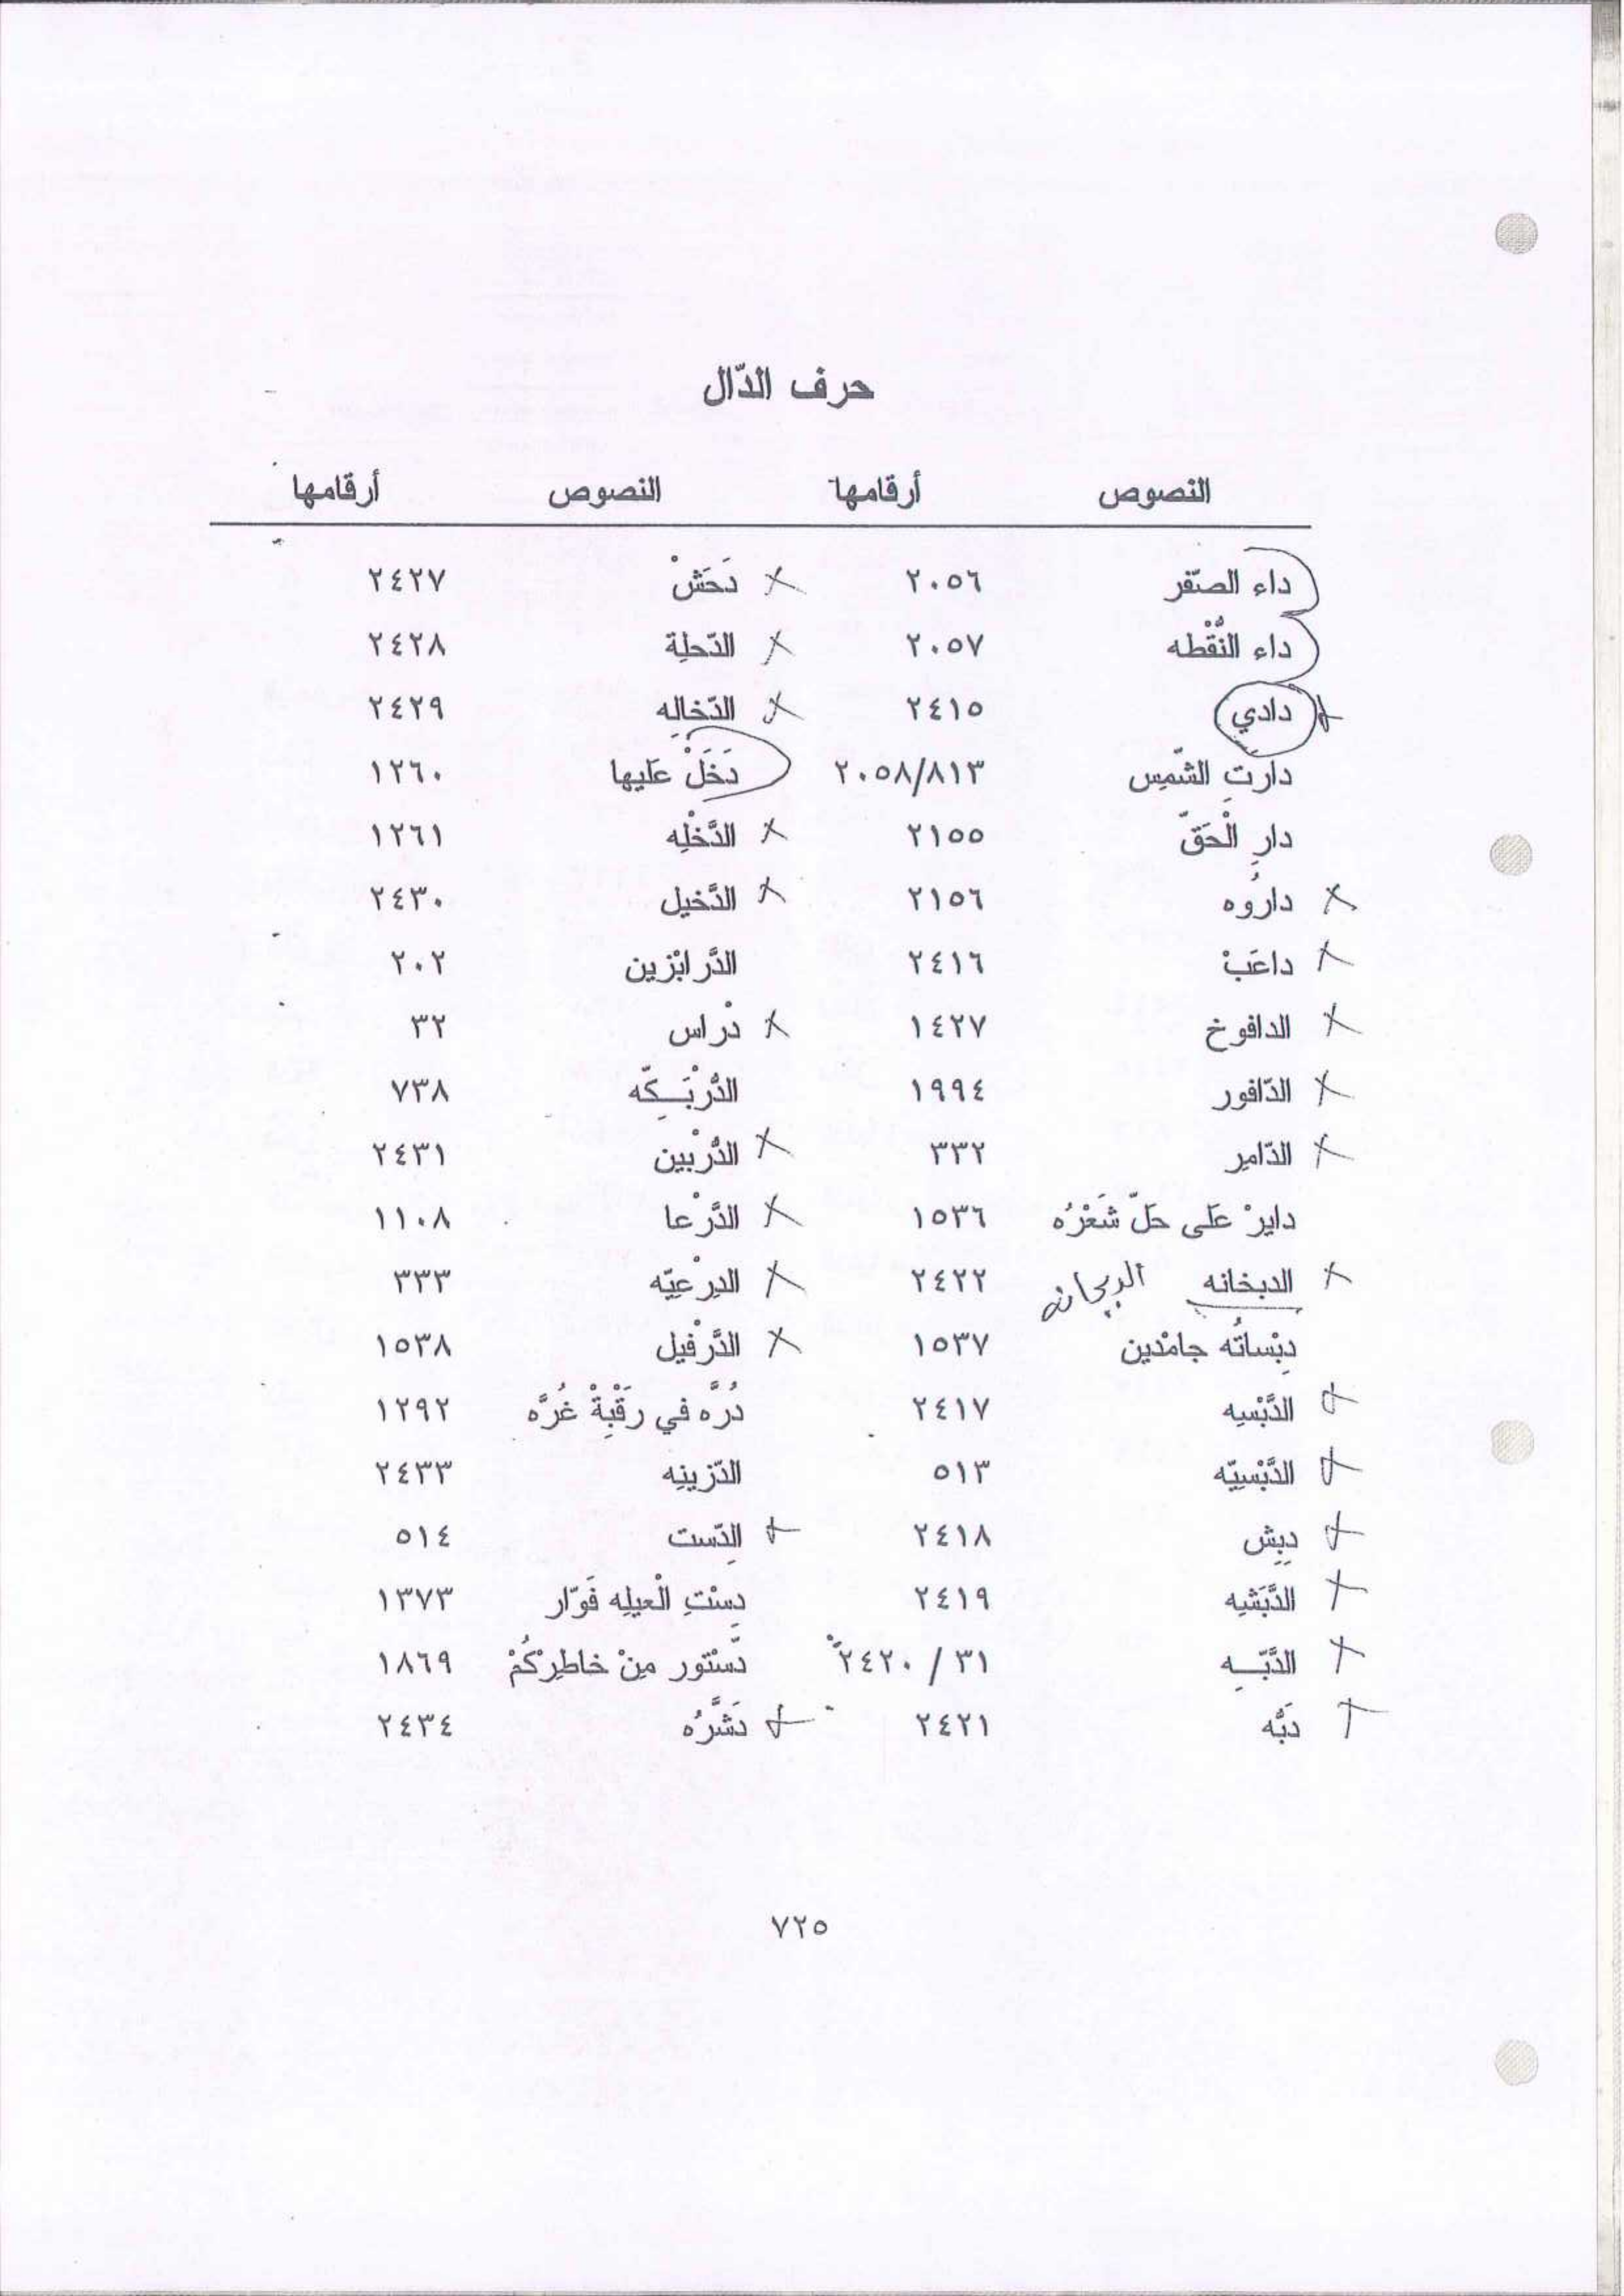 حرف الدّال
النصوص أرقامها النصوص أرقامها
داء الصّفر ٢٠٥٦ دَحَشْ ٢٤٢٧
داء النُّقْطه ٢٠٥٧ الدّحلِة ٢٤٢٨
دادي ٢٤١٥ الدّخالِه ٢٤٢٩
دارتِ الشّمِس ٢٠٥٨/٨١٣ دَخَلْ عَليها ١٢٦٠
دارِ الْحَقّ ٢١٥٥ الدَّخْلِه ١٢٦١
دارُوه ٢١٥٦ الدَّخيل ٢٤٣٠
داعَبْ ٢٤١٦ الدَّرابْزين ٢٠٢
الدافوخ ١٤٢٧ دْراس ٣٢
الدّافور ١٩٩٤ الدُّرْبَـكّه ٧٣٨
الدّامِر ٣٣٢ الدُّرْبين ٢٤٣١
دايرْ عَلى حَلّ شَعْرُه ١٥٣٦ الدَّرْعا ١١٠٨
الدبخانه الدبحانه ٢٤٢٢ الدِرْعيّه ٣٣٣
دِبْساتُه جامْدين ١٥٣٧ الدَّرْفيل ١٥٣٨
الدَّبْسِه ٢٤١٧ دُرَّه في رَقْبِةْ غُرَّه ١٢٩٢
الدَّبْسِيّه ٥١٣ الدّزينِه ٢٤٣٣
دِبِش ٢٤١٨ الدّسِت ٥١٤
الدَّبَشِه ٢٤١٩ دِسْتِ الْعيلِه فَوّار ١٣٧٣
الدَّبّـِه ٣١ / ٢٤٢٠ دَسْتور مِنْ خاطِرْكُمْ ١٨٦٩
دَبُّه ٢٤٢١ دَشَّرُه ٢٤٣٤
٧٢٥